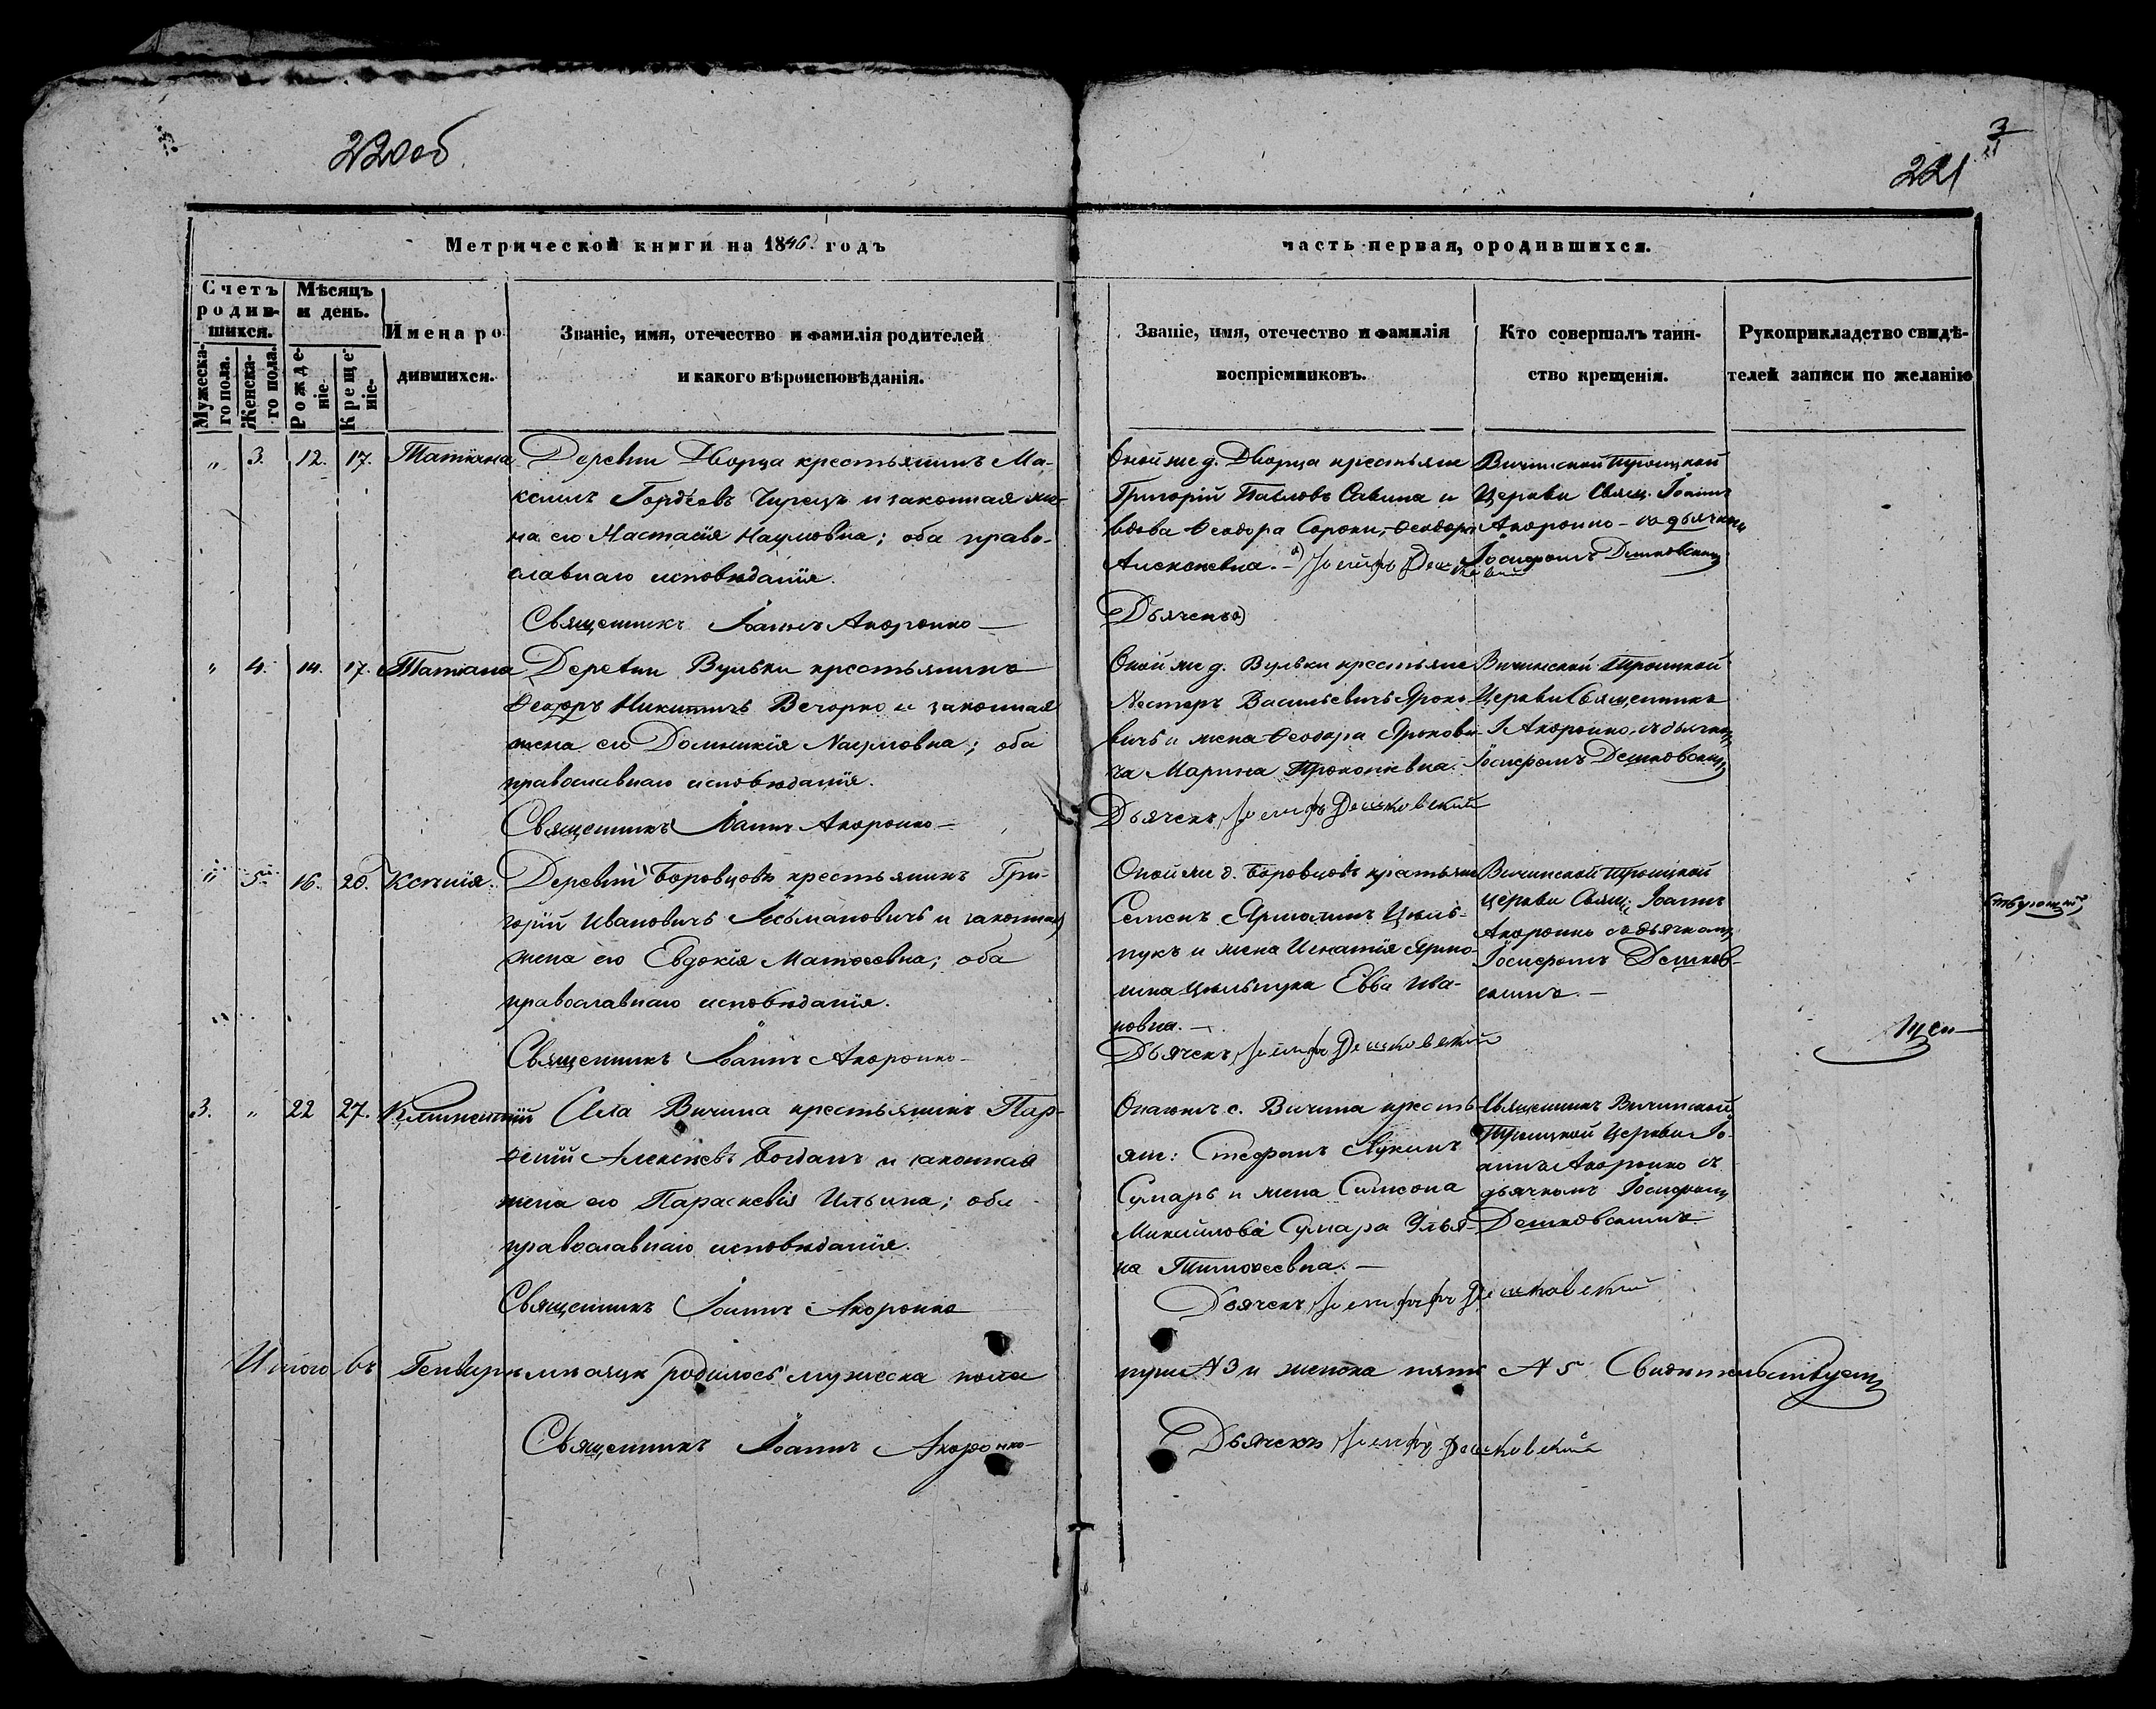 220об
3
221
Метрической книги на 1846 годъ
часть первая, ородившихся.
Счетъ родив-шихся.
Мѣсяцъ и день.
Мужеска-го пола.
Женска-го пола.
Рожде-ніе
Креще-ніе
Имена ро
дившихся.
Званіе, имя, отечество и фамилія родителей
и какого вѣроисповѣданія.
Званіе, имя, отечество и фамилія
воспріемниковъ.
Кто совершалъ таин-
ство крещенія.
Рукоприкладство свидѣ-
телей записи по желанію
" 3. 12. 17. Татіяна Деревни Дворца крестьянинъ Ма-
ксимъ Гордѣевъ и законная же-
на его Настасія Наумовна; оба право-
славнаго исповѣданія.
Священникъ Іоаннъ Акоронко
Оной же д. Дворца крестьяне
Григорій Павловъ Савина и
вдова Ѳеодора Сороки, Ѳеодора
Алексѣевна.
Дьячекъ
Вичинской Троицкой
Церкви Свящ. Іоаннъ
Акоронко со дьячкомъ
Іосифомъ Дешковскимъ
" 4. 14. 17. Татіана Деревни Вульки крестьянинъ
Ѳеодоръ Никитичъ Вечорко и законная
жена его Домникія Наумовна; оба
православнаго исповѣданія.
Священникъ Іоаннъ Акоронко
Оной же д. Вульки крестьяне
Несторъ Васильевичъ Яроко-
вичъ и жена Ѳеодора Ярокови-
ча Марина Прокопіевна.
Дьячекъ Іосифъ Дешковскій
Вичинской Троицкой
Церкви Священникъ
І Акоронко, съ дьячкомъ
Іосифомъ Дешковскимъ
" 5 16. 20. Ксенія. Деревни Боровцовъ крестьянинъ Гри-
горій Ивановичъ и законная
жена его Евдокія Матѳеевна; оба
православнаго исповѣданія.
Священникъ Іоаннъ Акоронко
Оной же д. Боровцовъ крестьяне
Семенъ Ярмолинъ Цюль-
пукъ и жена Игнатія Ярмо-
лина Цюльпука Евва Ива-
новна.
Дьячекъ Іосифъ Дешковскій
Вичинской Троицкой
Церкви Свящ: Іоаннъ
Акоронко со дьячкомъ
Іосифомъ Дешков-
скимъ.
3. " 22 27. Села Вичина крестьянинъ Пар-
ѳеній Алексѣевъ Богданъ и законная
жена его Параскевія Ильина; оба
православнаго исповѣданія.
Священникъ Іоаннъ Акоронко
Онагожъ с. Вичина кресть-
яне: Стефанъ Лукинъ
Сумаръ и жена Симеона
Михайлова Сумара Улья-
на Тимоѳеевна.
Дьячекъ Іосифъ Дешковскій
Священникъ Вичинской
Троицкой Церкви Іо-
аннъ Акоронко съ
дьячкомъ Іосифомъ
Дешковскимъ
Итого въ Генварѣ мѣсяцѣ родилось мужеска пола
трие № 3 и женска пять № 5 Свидѣтельствуемъ
Священникъ Іоаннъ Акоронко
Дьячекъ Іосифъ Дешковскій